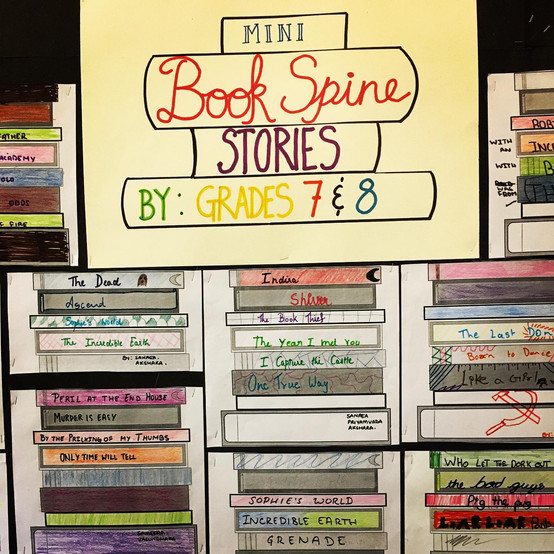 MINI
Book Spine
STORIES
BY: GRADES 7 & 8
FATHER
ACADEMY
FIRE
WITH AN
WITH
FROM
The Dead
Ascend
Sophie's World
The Incredible Earth
BY: SAHANA.
AKSHARA.
Indira
Shiver
The Book Thief
The Year I met you
I Capture the Castle
One True Way
SAHANA
PRIYAMVADA
AKSHARA.
The Last
Born to Dance
Like a Girl
BY:
PERIL AT THE END HOUSE
MURDER IS EASY
BY THE PRICKING OF MY THUMBS
ONLY TIME WILL TELL
SOPHIE'S WORLD
INCREDIBLE EARTH
GRENADE
WHO LET THE DORK OUT
the bad guys
Pig the pug
LIAR LIAR